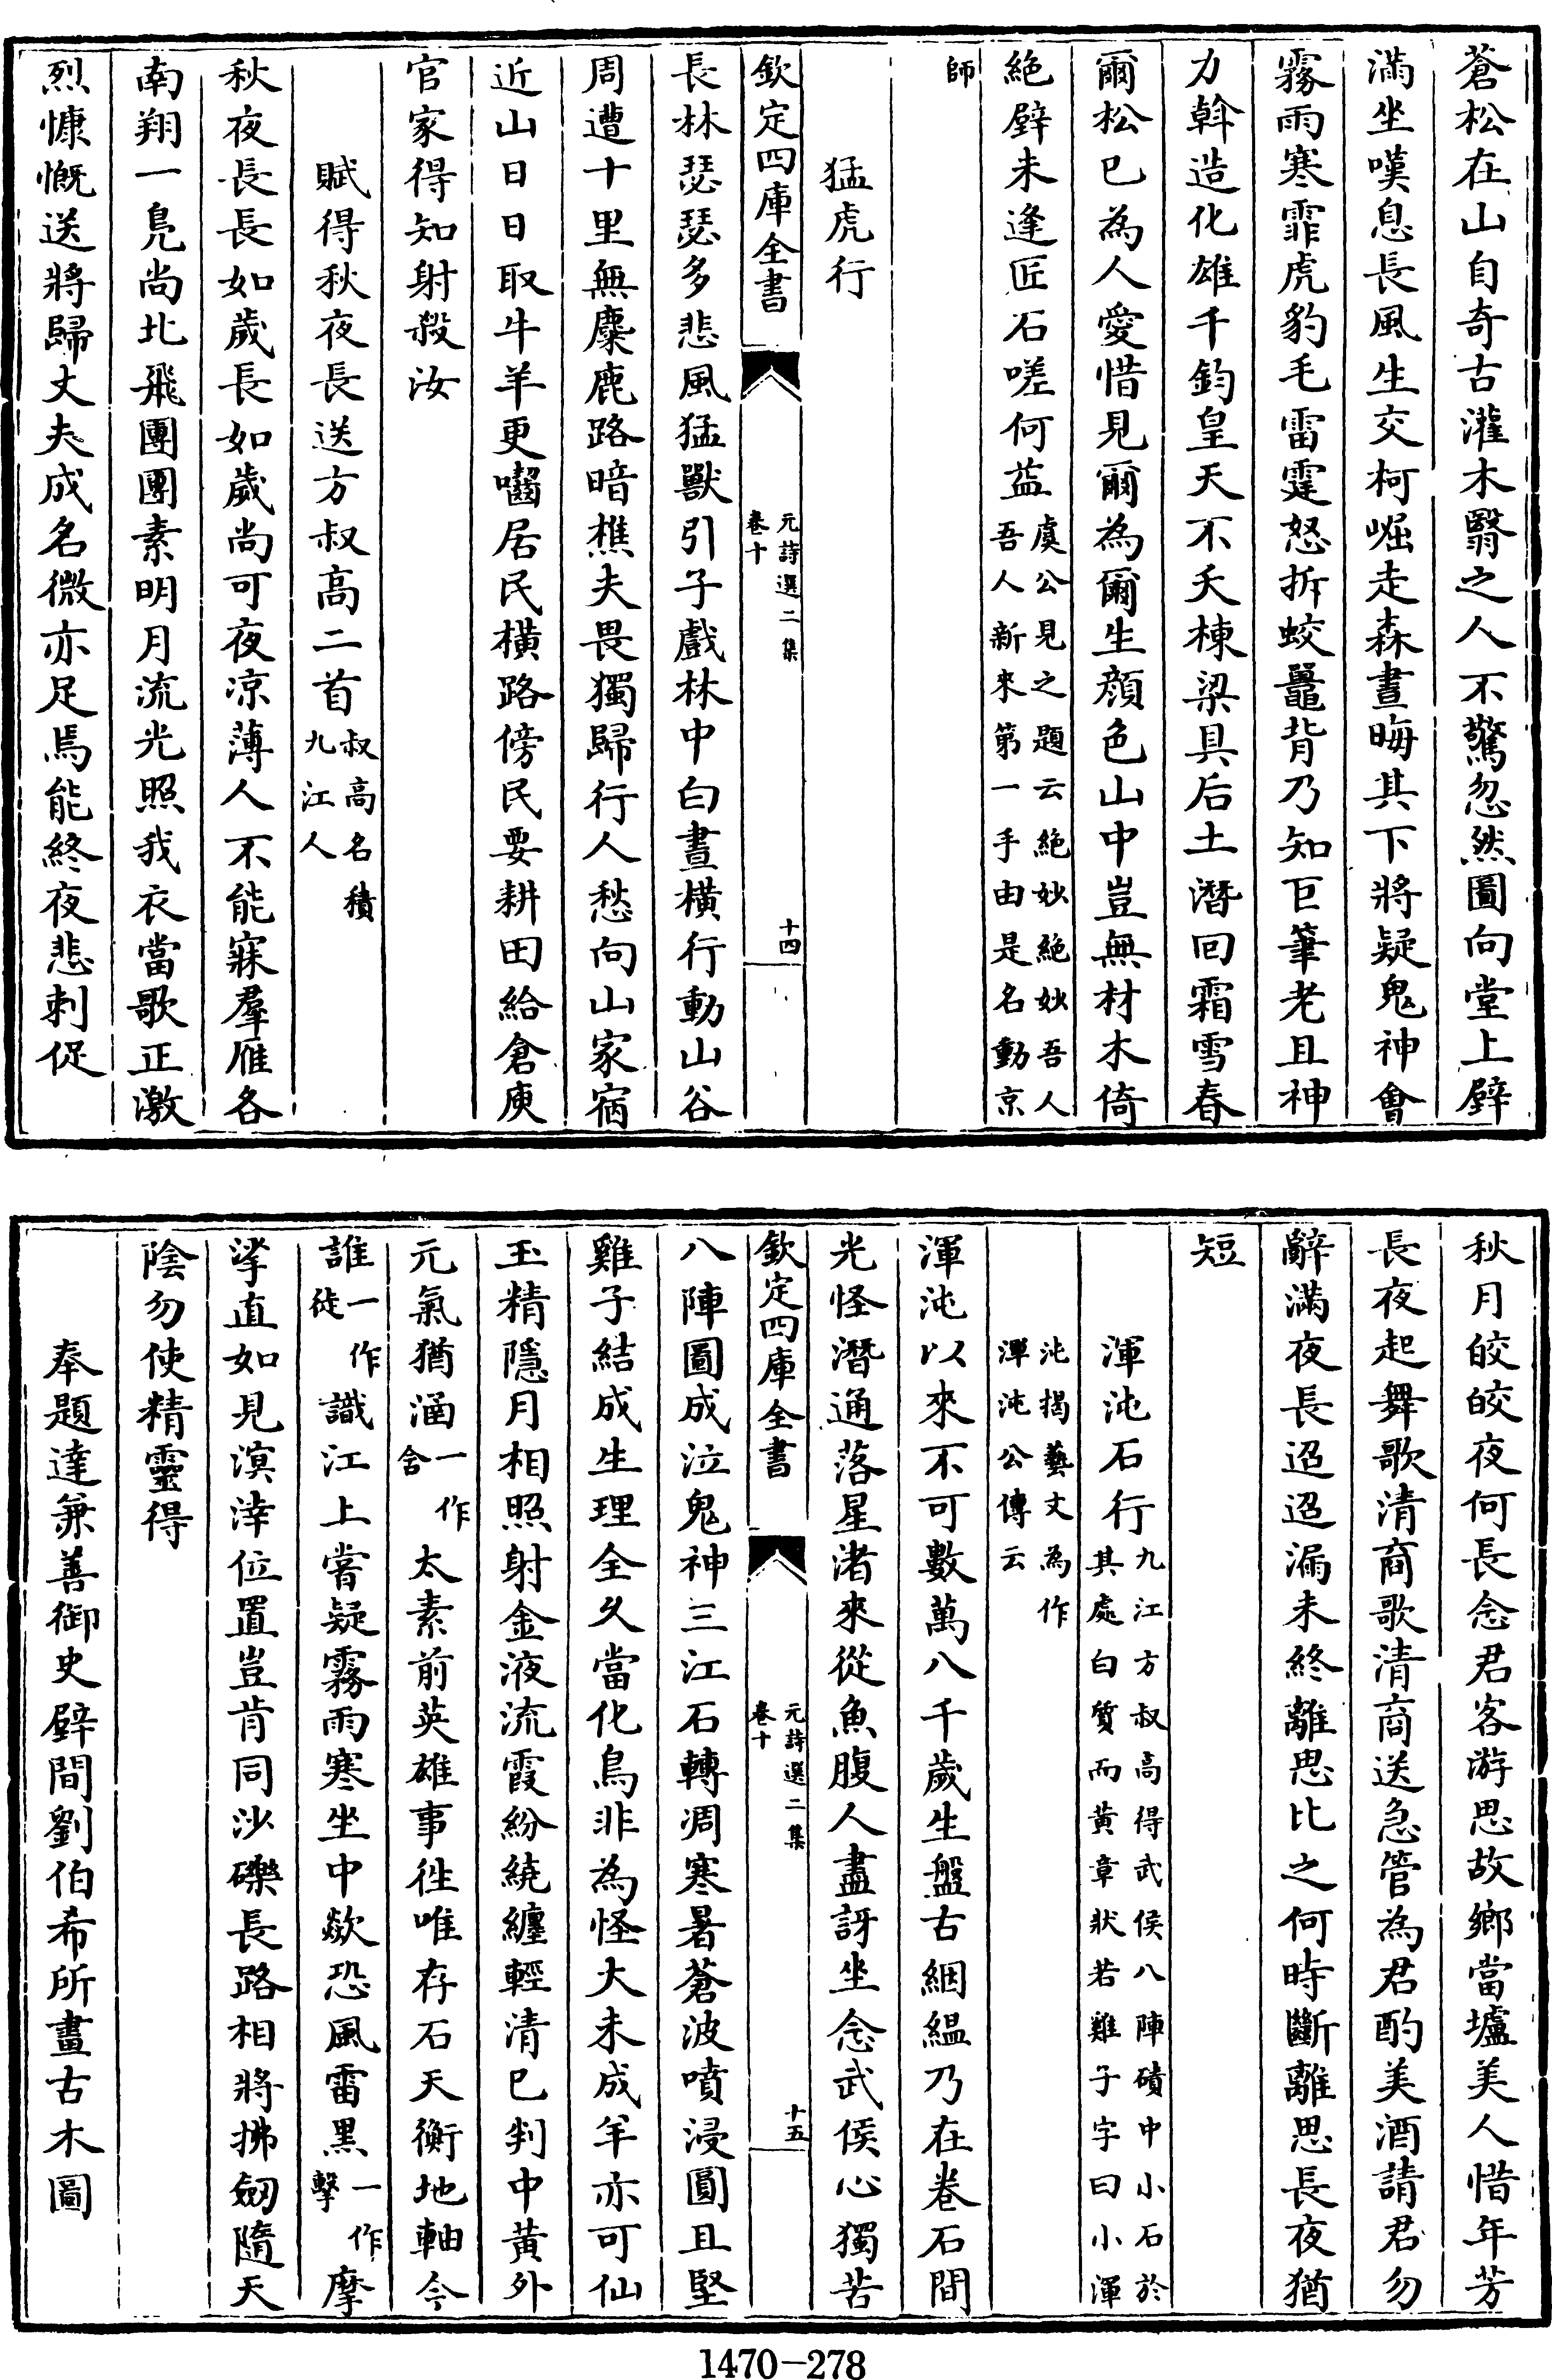 蒼松在山自奇古灌木翳之人不驚忽然圖向堂上壁
滿坐嘆息長風生交柯崛走森晝晦其下將疑鬼神會
霧雨寒霏虎豹毛雷霆怒拆蛟鼉背乃知巨筆老且神
力斡造化雄千鈞皇天不夭棟梁具后土潛回霜雪春
爾松已為人愛惜見爾為爾生顔色山中豈無材木倚
絶壁未逢匠石嗟何益虞公見之題云絶妙絶妙吾人
吾人新來第一手由是名動京
師
猛虎行
欽定四庫全書
元詩選二集
卷十
十四
長林瑟瑟多悲風猛獸引子戲林中白晝橫行動山谷
周遭十里無麋鹿路暗樵夫畏獨歸行人愁向山家宿
近山日日取牛羊更囓居民橫路傍民要耕田給倉庾
官家得知射殺汝
賦得秋夜長送方叔高二首叔高名積
九江人
秋夜長長如歲長如歲尚可夜凉薄人不能寐羣雁各
南翔一鳬尚北飛團團素明月流光照我衣當歌正激
烈慷慨送將歸丈夫成名微亦足焉能終夜悲刺促
秋月皎皎夜何長念君客游思故鄉當壚美人惜年芳
長夜起舞歌清商歌清商送急管為君酌美酒請君勿
辭滿夜長迢迢漏未終離思比之何時斷離思長夜猶
短
渾沌石行九江方叔高得武侯八陣磧中小石於
其處白質而黄章狀若雞子字曰小渾
沌揭藝文為作
渾沌公傳云
渾沌以來不可數萬八千歲生盤古絪緼乃在卷石間
光怪潛通落星渚來從魚腹人盡訝坐念武侯心獨苦
欽定四庫全書
元詩選二集
卷十
十五
八陣圖成泣鬼神三江石轉凋寒暑蒼波噴浸圓且堅
雞子結成生理全久當化鳥非為怪大未成羊亦可仙
玉精隱月相照射金液流霞紛繞纏輕清已判中黄外
元氣猶涵一作舍太素前英雄事徃唯存石天衡地軸今
誰一作徒識江上嘗疑霧雨寒坐中歘恐風雷黑一作擊摩
挲直如見溟涬位置豈肯同沙礫長路相將拂劒隨天
陰勿使精靈得
奉題達兼善御史壁間劉伯希所畫古木圖
1470-278